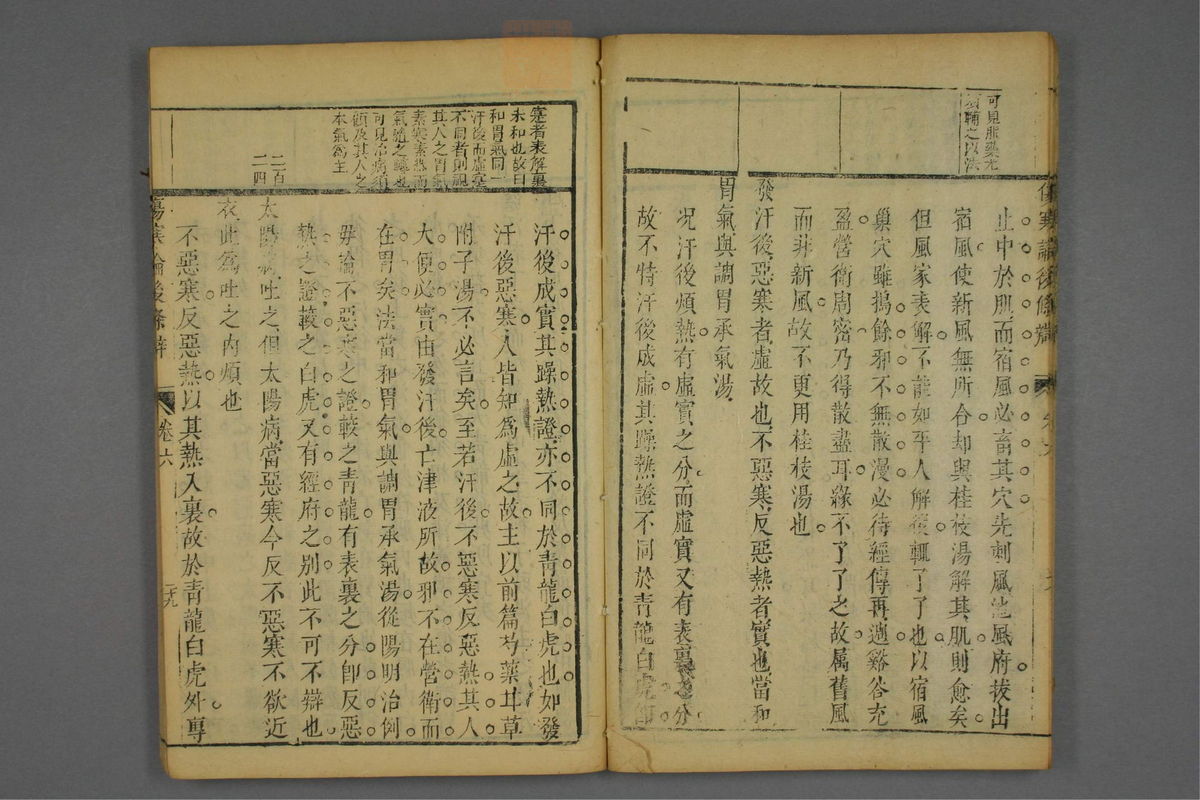 可見服藥尤
須輔之以法
傷寒論後條辯
止中於肌而宿風必畜其穴先刺風池風府拔出
宿風使新風無所合却與桂枝湯解其肌則愈矣
但風家表解不能如平人解後輒了了也以宿風
巢穴雖搗餘邪不無散漫必待經傳再過谿谷充
盈營衛周密乃得散盡耳緣不了了之故屬舊風
而非新風故不更用桂枝湯也
發汗後惡寒者虛故也不惡寒反惡熱者實也當和
胃氣與調胃承氣湯
况汗後煩熱有虛實之分而虛實又有表裏之分
故不特汗後成虛其躁熱證不同於青龍白虎卽
寒者表解裏
未和也故曰
和胃氣同一
汗後而虛寔
不同者則視
其人之胃氣
素寒素熱而
氣隨之轉也
可見治病須
顧及其人之
本氣為主
二百
二四
汗後成實其躁熱證亦不同於青龍白虎也如發
汗後惡寒人皆知為虛之故主以前篇芍藥甘草
附子湯不必言矣至若汗後不惡寒反惡熱其人
大便必實由發汗後亡津液所故邪不在營衛而
在胃矣法當和胃氣與調胃承氣湯從陽明治例
毋論不惡寒之證較之青龍有表裏之分卽反惡
熱之證較之白虎又有經府之別此不可不辯也
太陽病吐之但太陽病當惡寒今反不惡寒不欲近
衣此為吐之內煩也
不惡寒反惡熱以其熱入裏故於青龍白虎外專
傷寒論後條辯
卷六